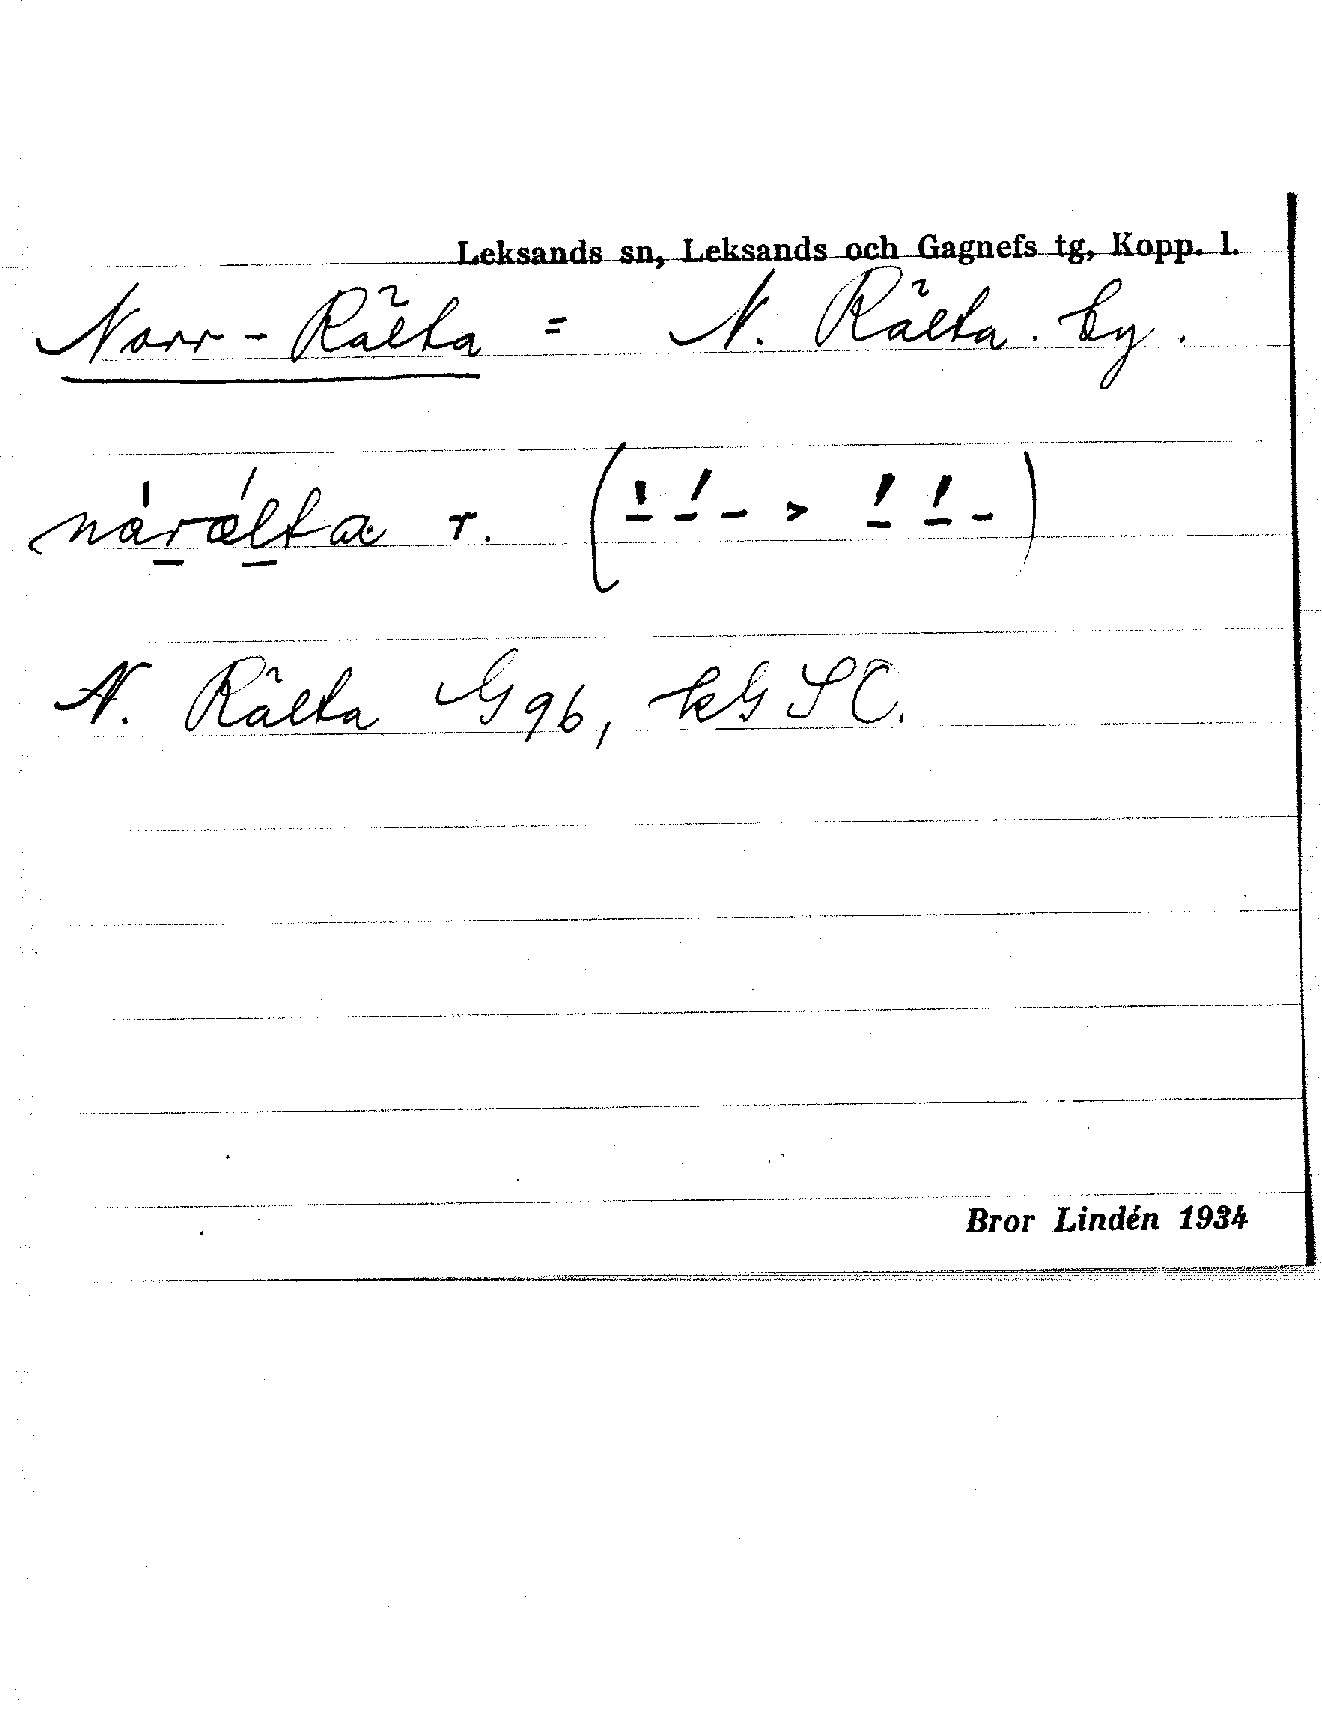 Leksands sn, Leksands och Gagnefs tg, Kopp. l.
Norr-Rälta = N. Rälta. by.
nárǽlta r. ( ̱́ ̱́ - > ̱́ ̱́ - )
N. Rälta G96, kG SC.
Bror Lindén 1934